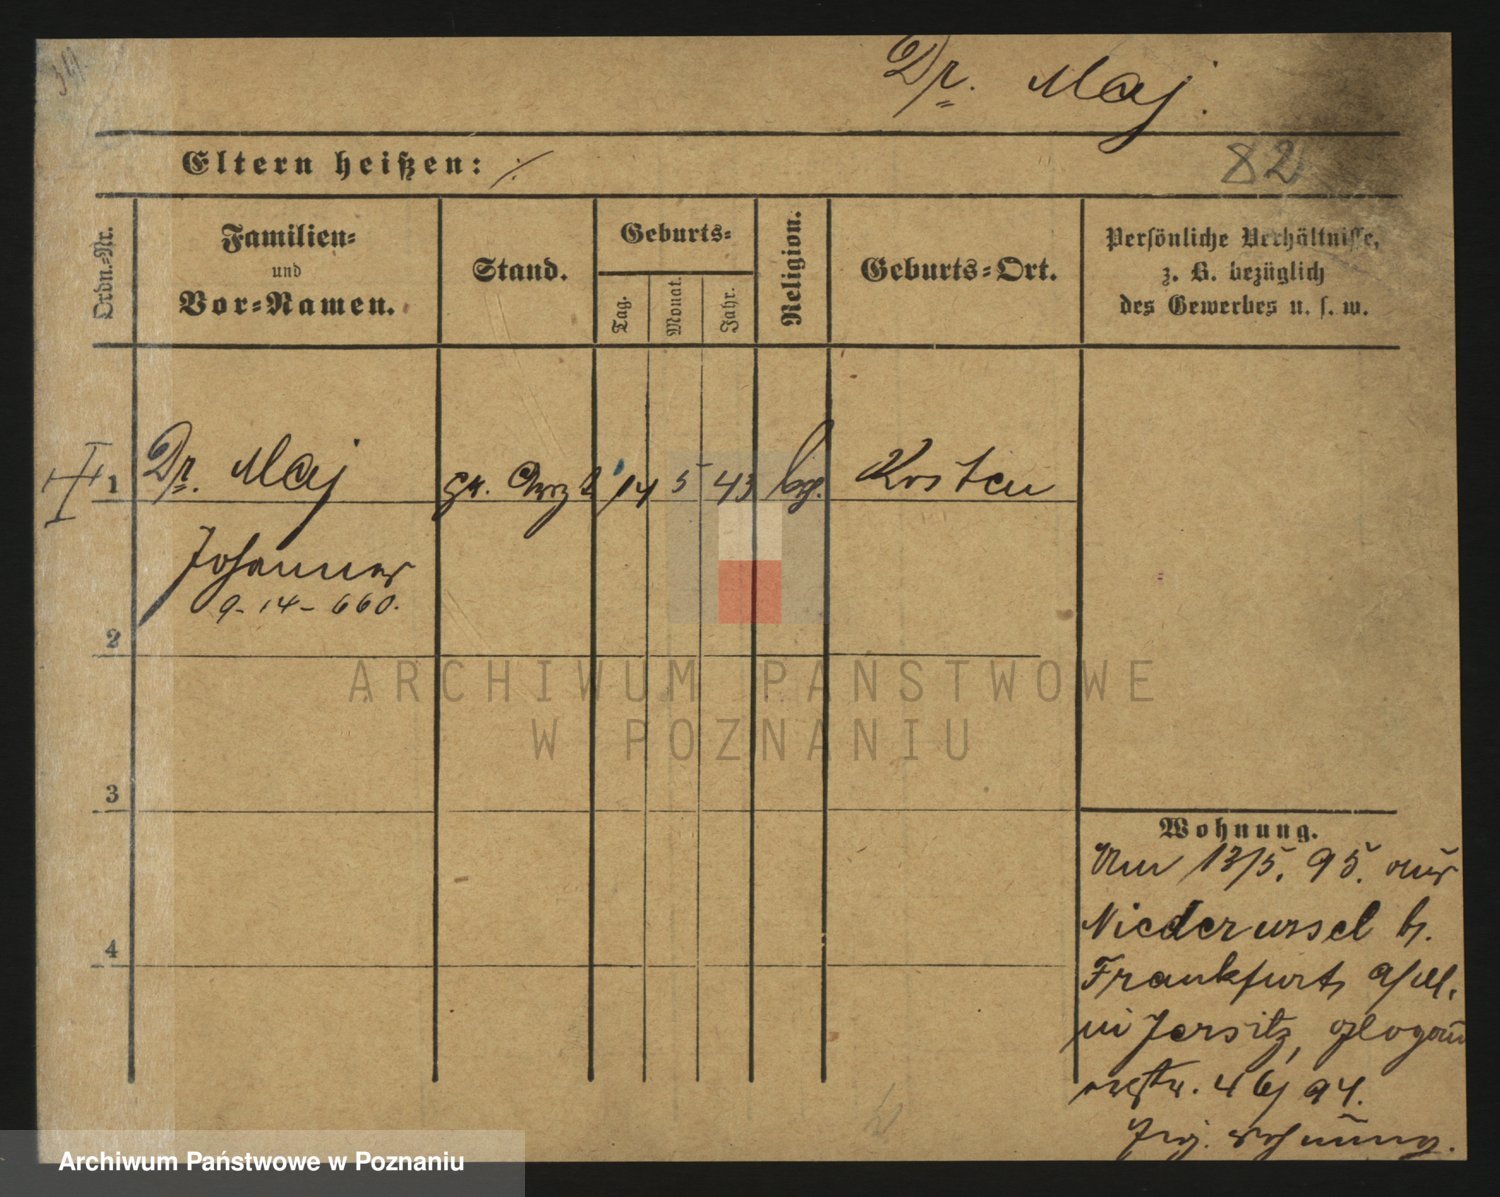 Dr. Maj.
82
Eltern heißen: ./.
Ordn.=Nr.
Familien=
und
Vor=Namen.
Stand.
Geburts=
Tag.
Monat.
Jahr.
Religion.
Geburts=Ort.
Persönliche Verhältnisse,
z. B. bezüglich
des Gewerbes u. s. w.
1
Dr. Maj
pr. Arzt
14
5
43
Kosten
Johannes
9-14-660.
2
ARCHIWUM PAŃSTWOWE
W POZNANIU
3
Wohnung.
Am 13/5. 95. aus
Niederursel b.
Frankfurt a/M.
in Jersitz, Glogau
erstr. 46/94.
4
Archiwum Państwowe w Poznaniu